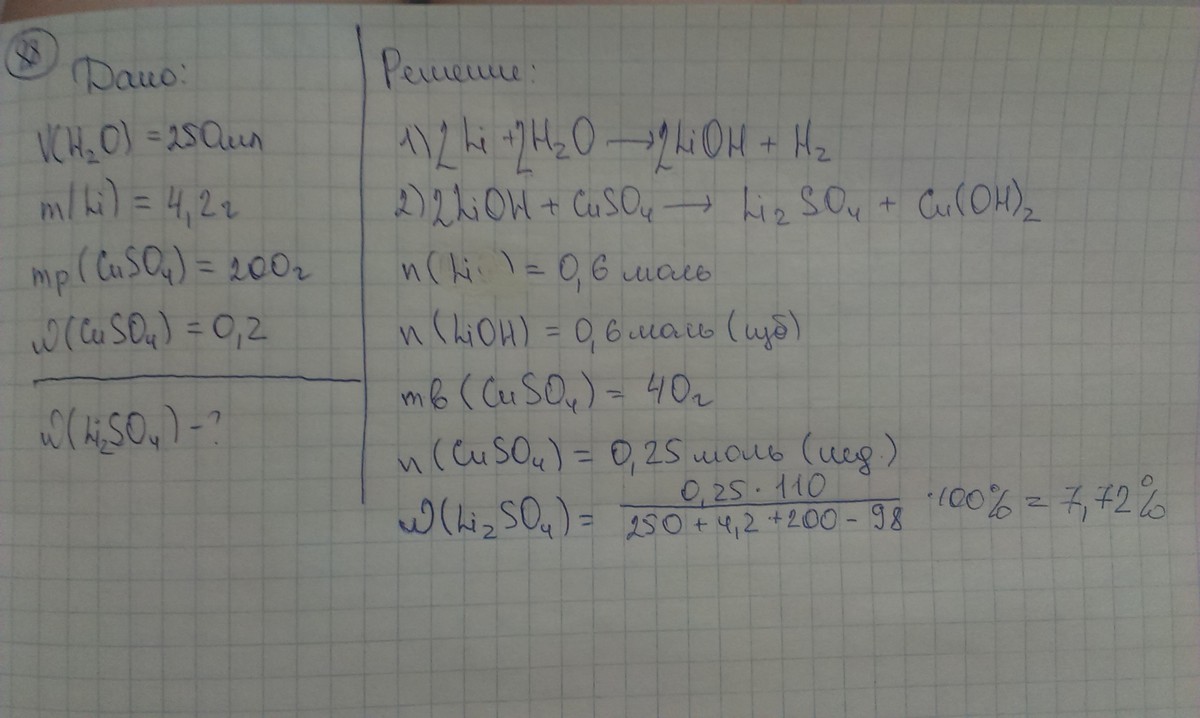 88
Дано:
V(H₂O) = 250мл
m(Li) = 4,2г
mр(CuSO₄) = 200г
ω(CuSO₄) = 0,2
ω(Li₂SO₄) - ?
Решение:
1) 2Li + 2H₂O → 2LiOH + H₂
2) 2LiOH + CuSO₄ → Li₂SO₄ + Cu(OH)₂
n(Li ) = 0,6 моль
n(LiOH) = 0,6 моль (изб)
mв(CuSO₄) = 40г
n(CuSO₄) = 0,25 моль (нед.)
ω(Li₂SO₄) = 0,25 · 110 / 250 + 4,2 + 200 - 98 · 100% = 7,72%